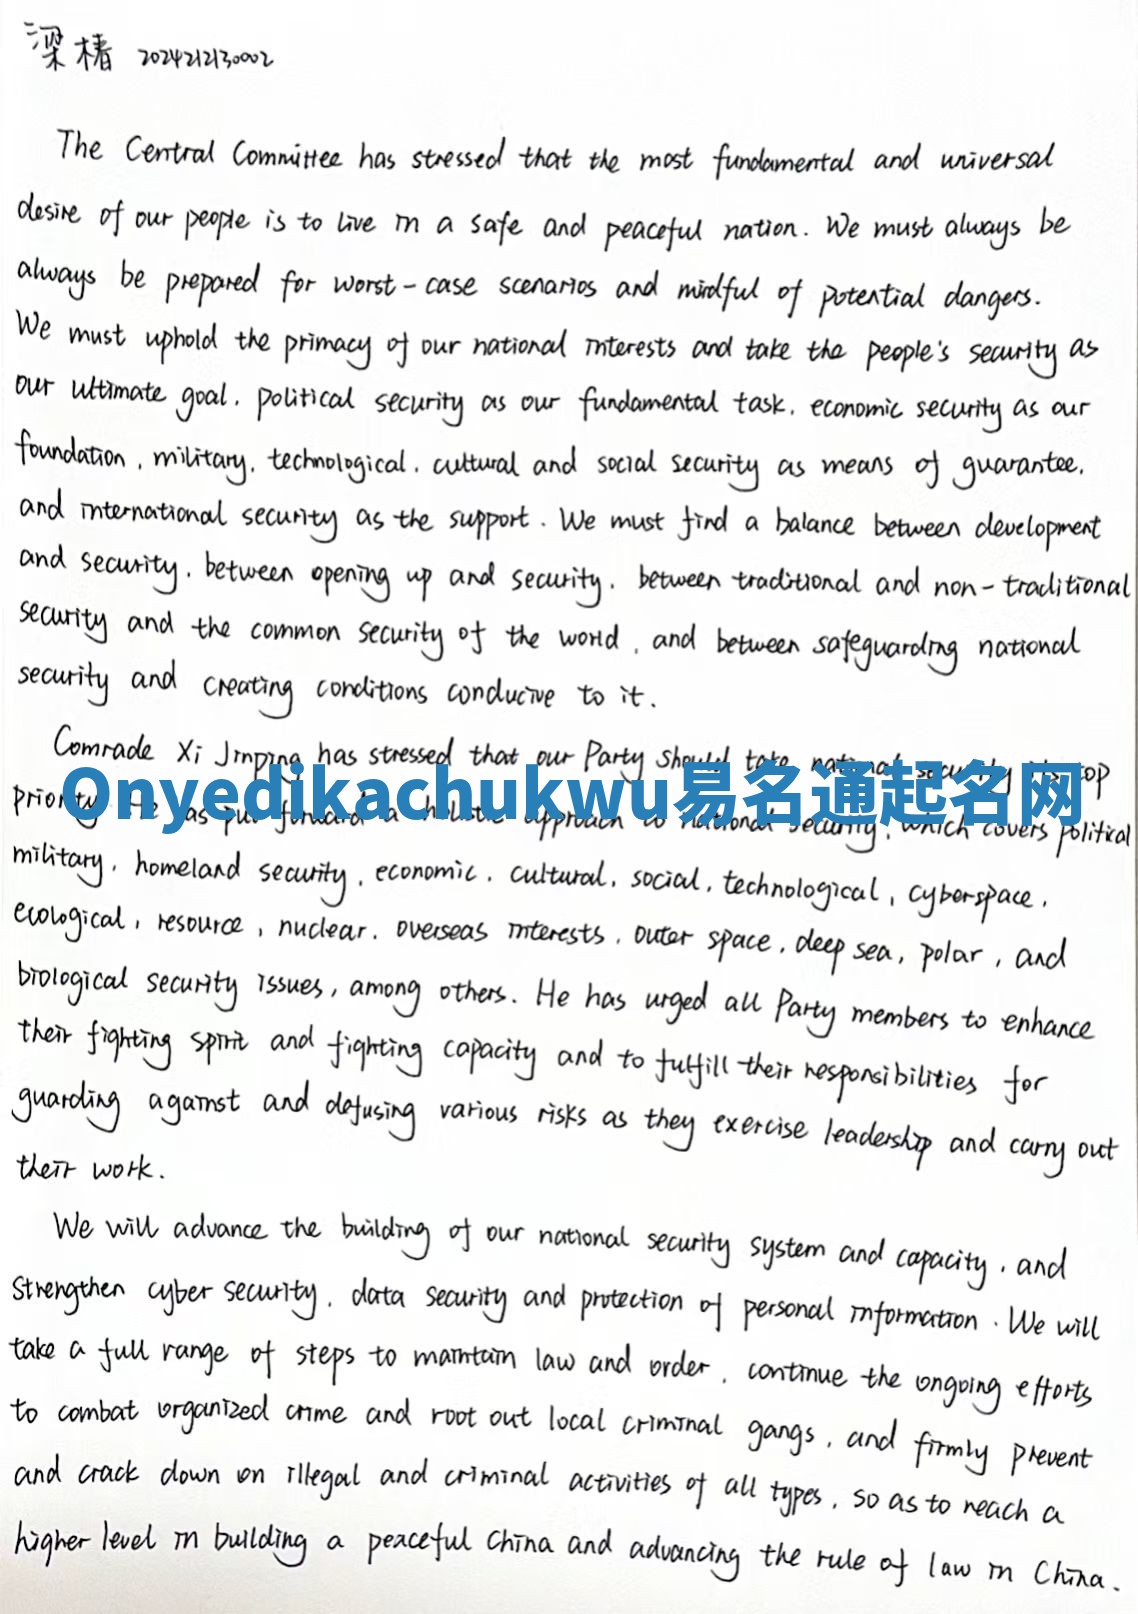 梁椿 2024212130002
The Central Committee has stressed that the most fundamental and universal
desire of our people is to live in a safe and peaceful nation. We must always be
always be prepared for worst-case scenarios and mindful of potential dangers.
We must uphold the primacy of our national interests and take the people's security as
our ultimate goal, political security as our fundamental task, economic security as our
foundation, military, technological, cultural and social security as means of guarantee,
and international security as the support. We must find a balance between development
and security, between opening up and security, between traditional and non-traditional
security and the common security of the world, and between safeguarding national
security and creating conditions conducive to it.
Comrade Xi Jinping has stressed that our Party should take national security its top
Onyedikachukwu易名通起名网
priority. He has put forward a holistic approach to national security, which covers political
military, homeland security, economic, cultural, social, technological, cyberspace,
ecological, resource, nuclear, overseas interests, outer space, deep sea, polar, and
biological security issues, among others. He has urged all Party members to enhance
their fighting spirit and fighting capacity and to fulfill their responsibilities for
guarding against and defusing various risks as they exercise leadership and carry out
their work.
We will advance the building of our national security system and capacity, and
strengthen cyber security, data security and protection of personal information. We will
take a full range of steps to maintain law and order, continue the ongoing efforts
to combat organized crime and root out local criminal gangs, and firmly prevent
and crack down on illegal and criminal activities of all types, so as to reach a
higher level in building a peaceful China and advancing the rule of law in China.